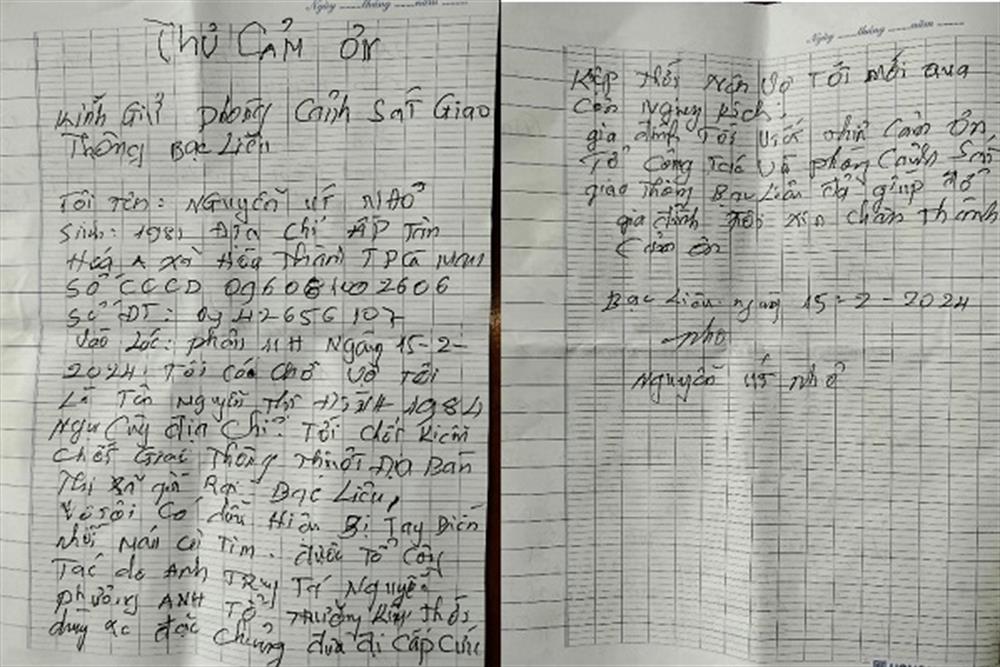 Ngày ......tháng ......năm ......
THƯ CẢM ƠN
Kính Gửi Phòng Cảnh Sát Giao
Thông Bạc Liêu
Tôi tên: NGUYỄN ÚT NHỎ
Sinh: 1981 Địa Chỉ ẤP Tân
A xã Thành TP Cà Mau
SỐ CCCD
SỐ ĐT:
Vào Lúc: phần 11H Ngày 15-2-
2024. Tôi có chở Vợ Tôi
Là Tên Nguyễn Thị 1984
Ngụ Cùng địa Chỉ. Tới chốt Kiểm
Giao Thông Thuộc Địa Bàn
Thị xã giá Rai Bạc Liêu,
Vợ tôi Có dấu Hiệu Bị Tay Biến
Nhồi Máu Cơ Tim. được Tổ Công
Tác do ANH Trung Tá Nguyễn
Phương ANH Tổ Trưởng Kịp Thời
dùng xe đặc Chủng đưa đi Cấp Cứu
Ngày ......tháng ......năm ......
Kịp Thời Nên Vợ Tôi Mới qua
Cơn Nguy Kịch.
gia đình Tôi Viết thư Cảm Ơn,
Tổ Công Tác Và phòng Cảnh Sát
giao Thông Bạc Liêu đã giúp đỡ
gia đình tôi xin chân Thành
Cảm ơn
Bạc Liêu. ngày 15-2-2024
nhỏ
Nguyễn Út nhỏ